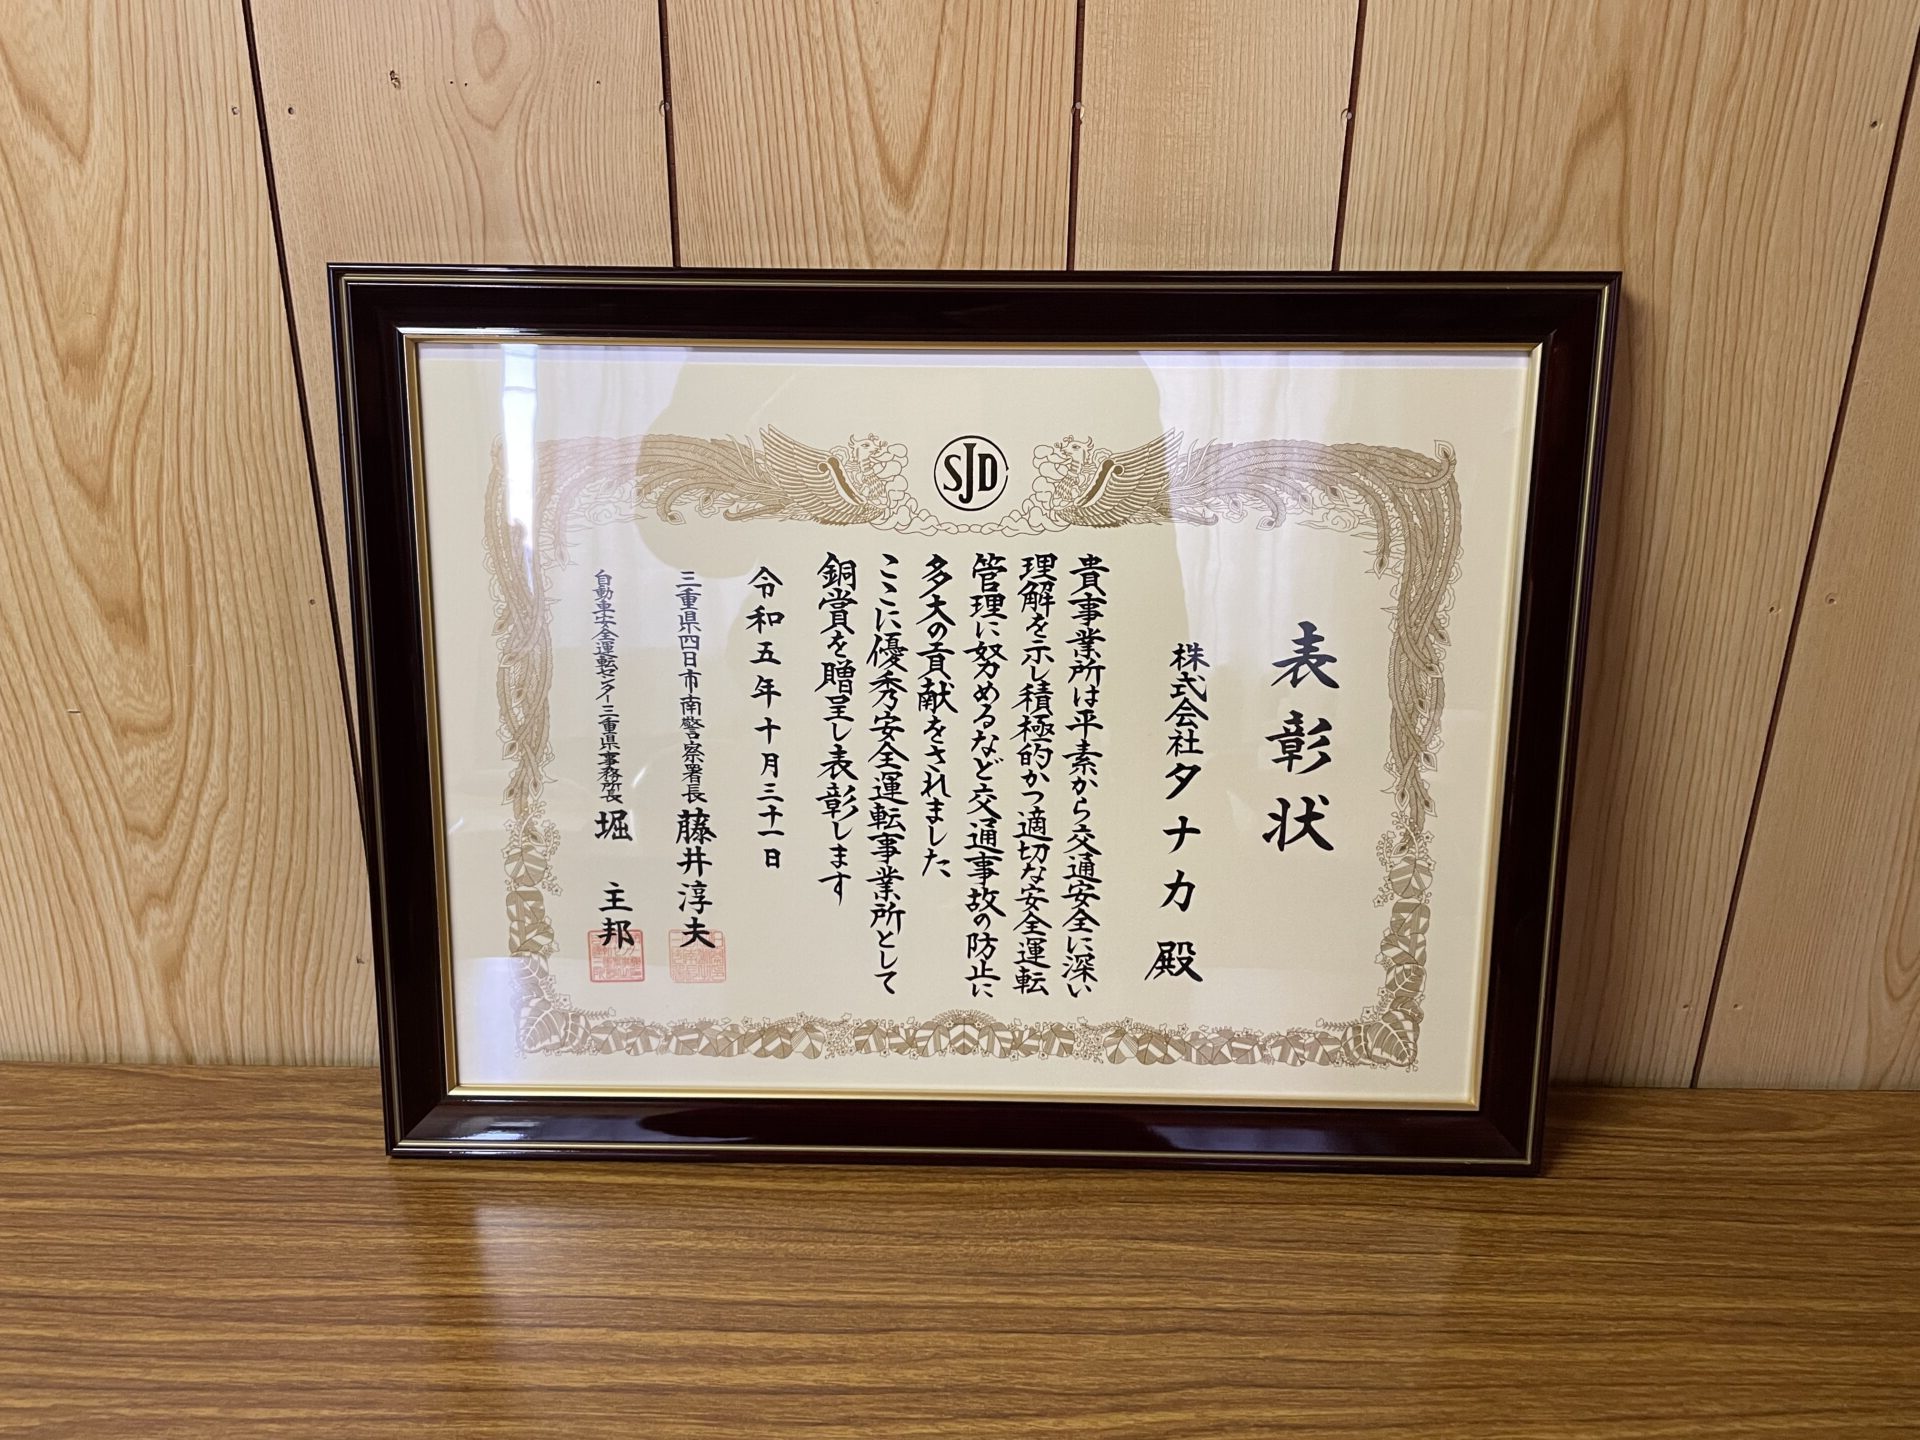 SJD
表彰状
株式会社タナカ 殿
貴事業所は平素から交通安全に深い
理解を示し積極的かつ適切な安全運転
管理に努めるなど交通事故の防止に
多大の貢献をされました
ここに優秀安全運転事業所として
銅賞を贈呈し表彰します
令和五年十月三十一日
三重県四日市南警察署長 藤井淳夫
自動車安全運転センター三重県事務所長 堀 主邦